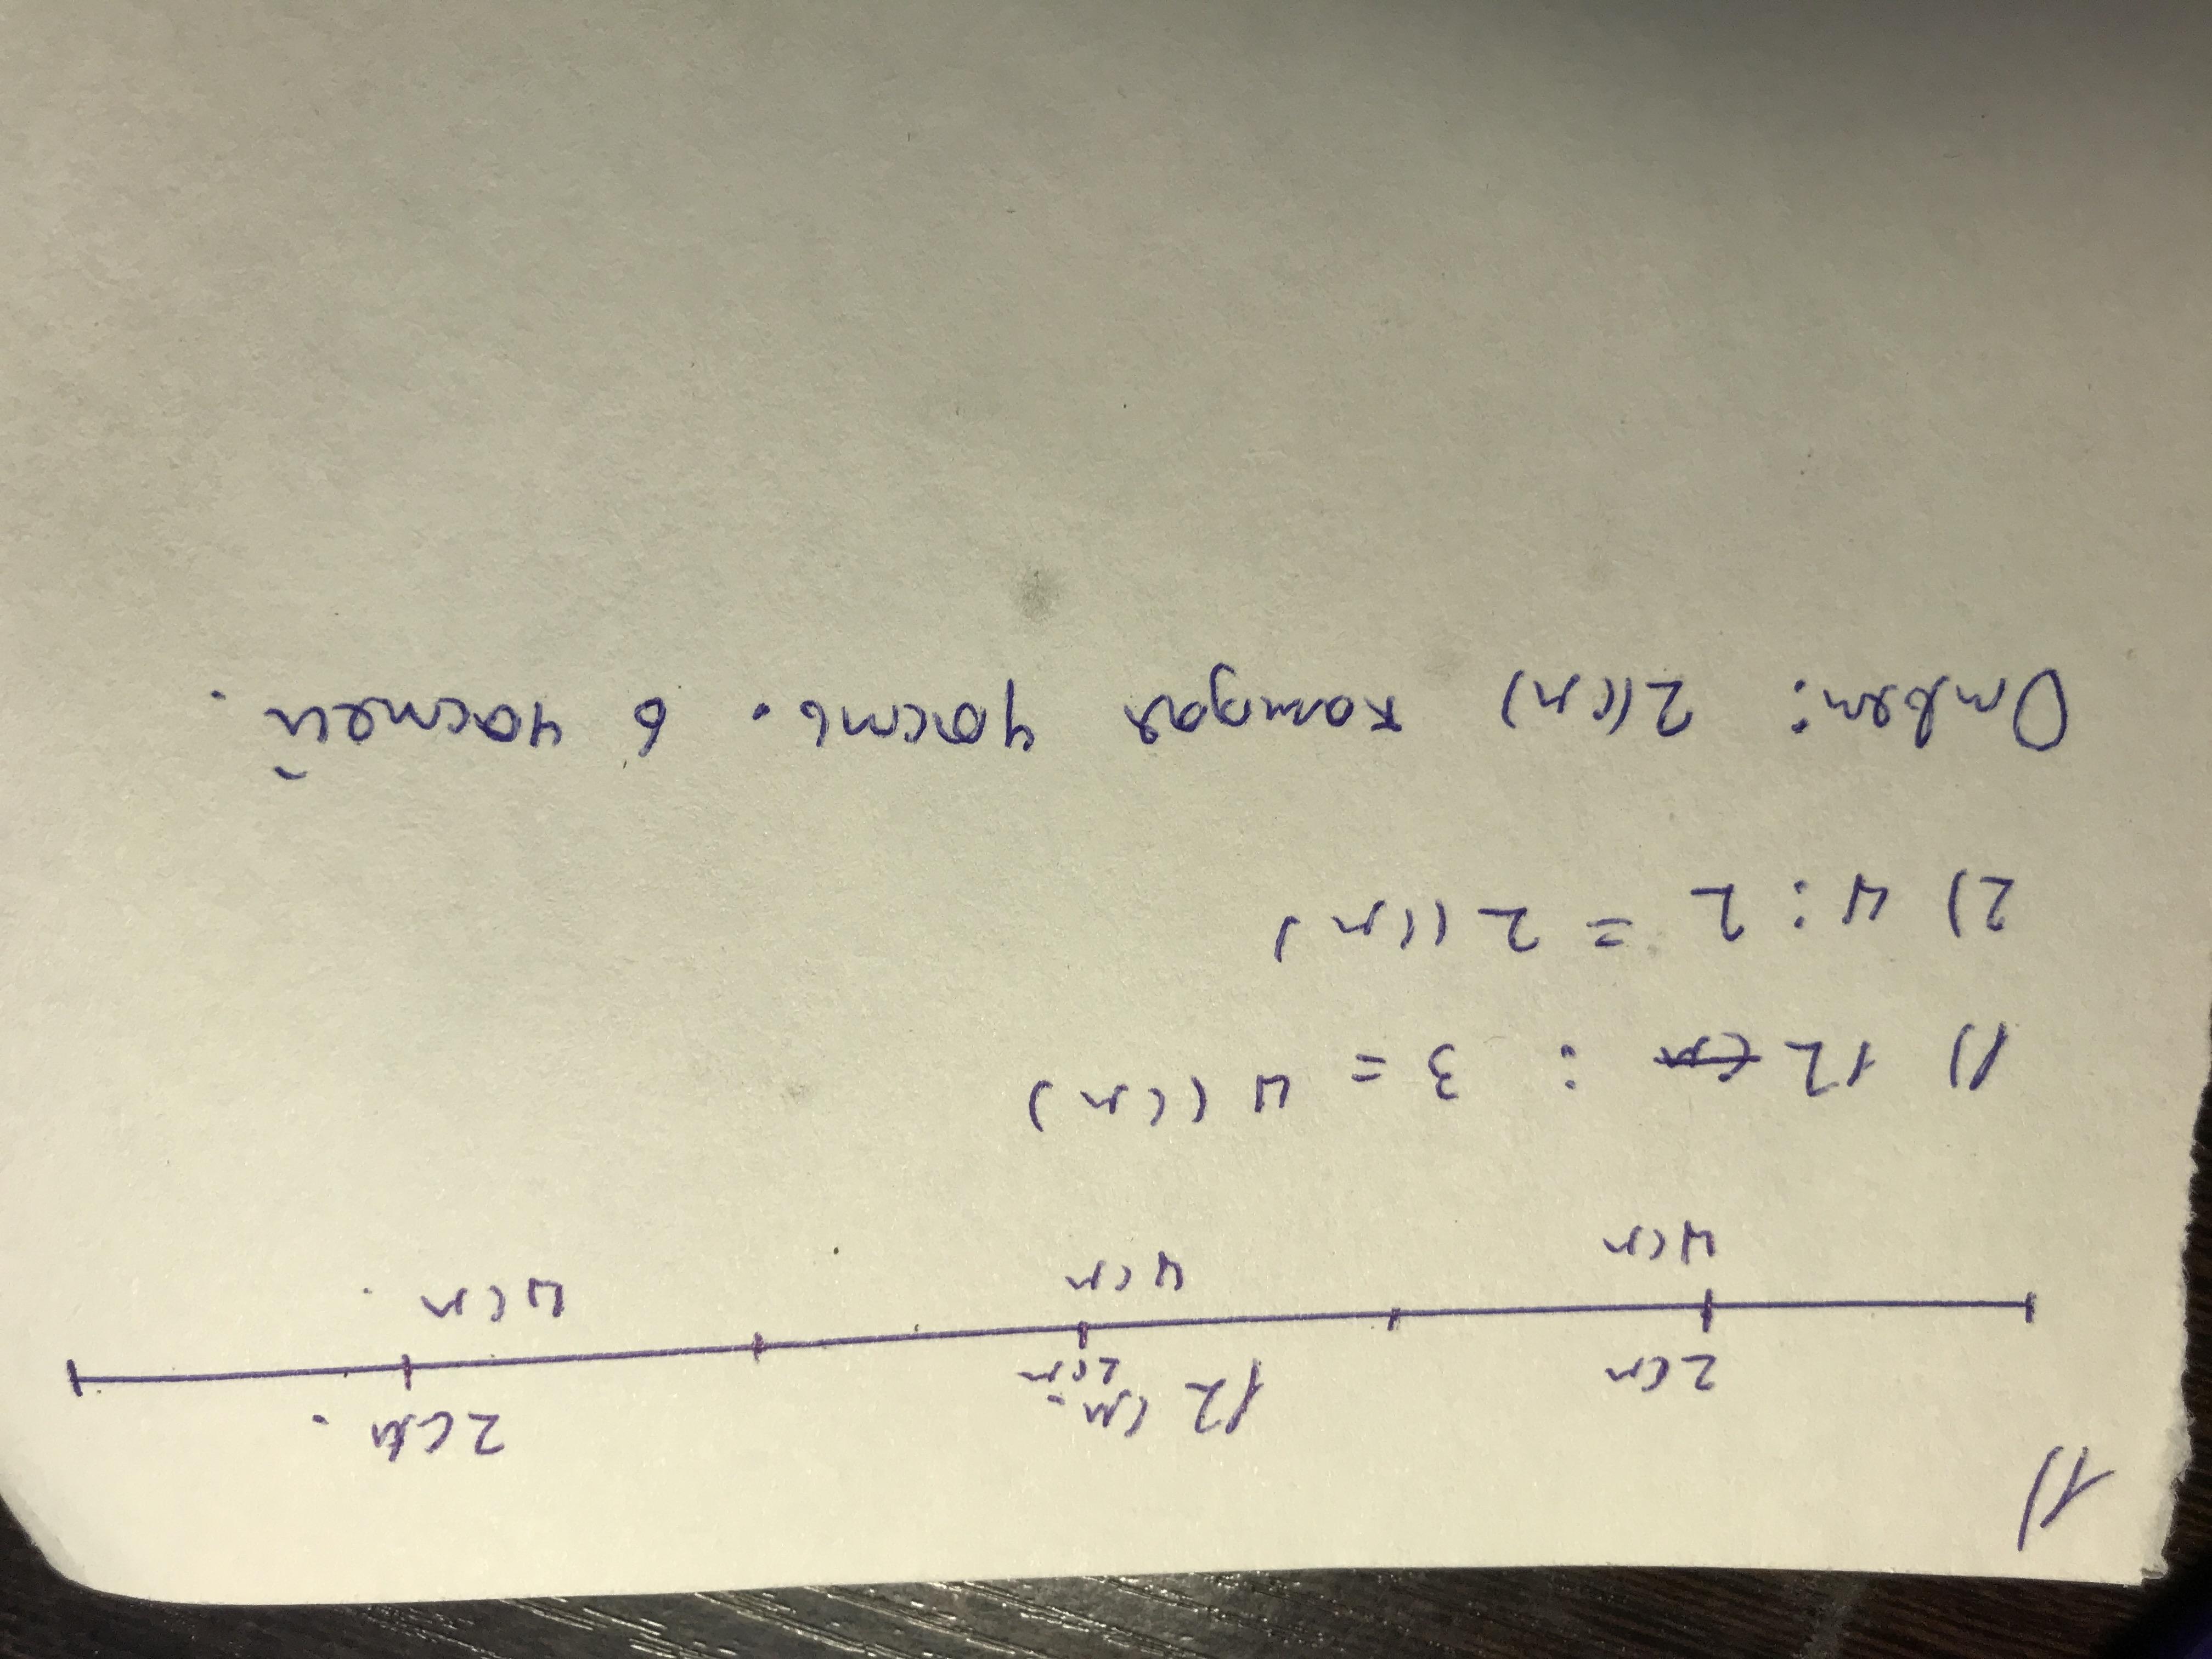 1)
2 см 12 см. 2 см.
2 см
4 см 4 см 4 см.
1) 12 см : 3 = 4 (см)
2) 4 : 2 = 2 (см)
Ответ: 2 (см) каждая часть. 6 частей.